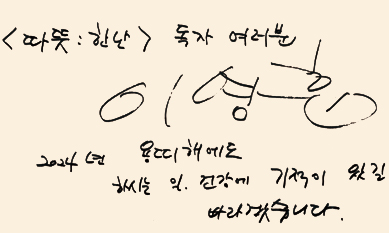 <따뜻:한난> 독자 여러분
2024년 용띠해에도
하시는 일, 건강에 기적이 있길
바라겠습니다.